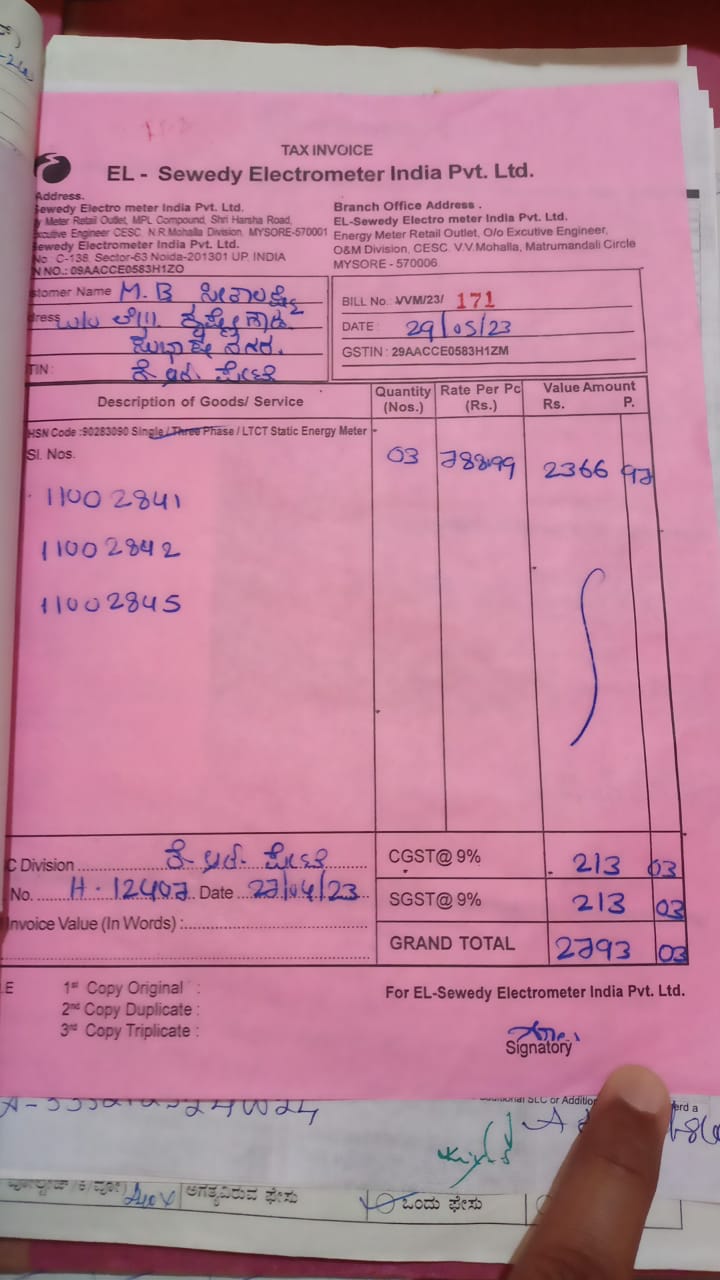 TAX INVOICE
EL - Sewedy Electrometer India Pvt. Ltd.
Address.
Sewedy Electro meter India Pvt. Ltd.
y Meter Retail Outlet, MPL Compound, Shri Harsha Road,
Excutive Engineer CESC, N.R.Mohalla Division, MYSORE-570001
Sewedy Electrometer India Pvt. Ltd.
No C-138, Sector-63 Noida-201301 UP, INDIA
N NO.: 09AACCE0583H1ZO
Branch Office Address .
EL-Sewedy Electro meter India Pvt. Ltd.
Energy Meter Retail Outlet, O/o Excutive Engineer,
O&M Division, CESC, V.V.Mohalla, Matrumandali Circle
MYSORE - 570006
stomer Name M.B
dress
TIN :
BILL No. VVM/23/ 171
DATE : 29/05/23
GSTIN : 29AACCE0583H1ZM
Description of Goods/ Service
Quantity (Nos.)
Rate Per Pc (Rs.)
Value Amount
Rs. P.
HSN Code :90283090 Single / Three Phase / LTCT Static Energy Meter
Sl. Nos.
03 788.99 2366 97
11002841
11002842
11002845
C Division
No. H-12407 Date 27/04/23
Invoice Value (In Words) :
CGST@ 9% 213 03
SGST@ 9% 213 03
GRAND TOTAL 2793 03
E 1st Copy Original :
2nd Copy Duplicate :
3rd Copy Triplicate :
For EL-Sewedy Electrometer India Pvt. Ltd.
Signatory
ಅಗತ್ಯವಿರುವ ಫೇಸು
ಒಂದು ಫೇಸು